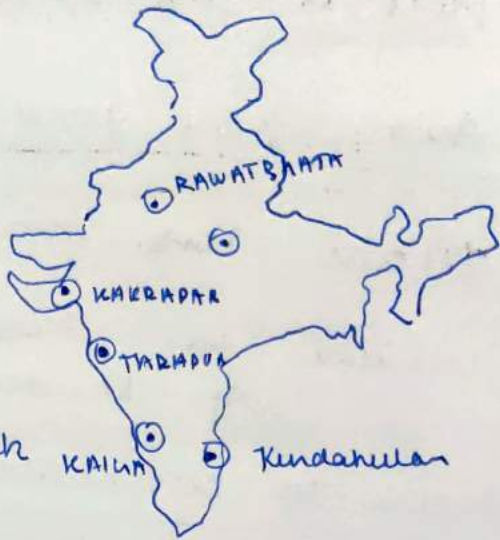 RAWATBHATA
KAKRAPAR
TARAPUR
KAIGA Kundankulam